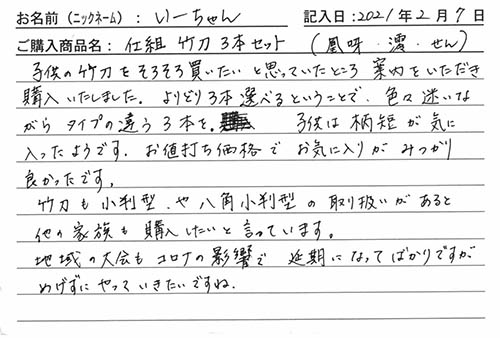 お名前（ニックネーム）： いーちゃん 記入日：2021年2月7日
ご購入商品名： 仕組竹刀3本セット （風味・澪・せん）
子供の竹刀をそろそろ買いたいと思っていたところ 案内をいただき
購入いたしました。よりどり3本選べるということで、色々迷いな
がら タイプの違う3本を。 子供は柄短が気に
入ったようです。お値打ち価格で お気に入りが みつかり
良かったです。
竹刀も小判型、や八角小判型の取り扱いがあると
他の家族も購入したいと言っています。
地域の大会もコロナの影響で 延期になってばかりですが
めげずにやっていきたいですね。